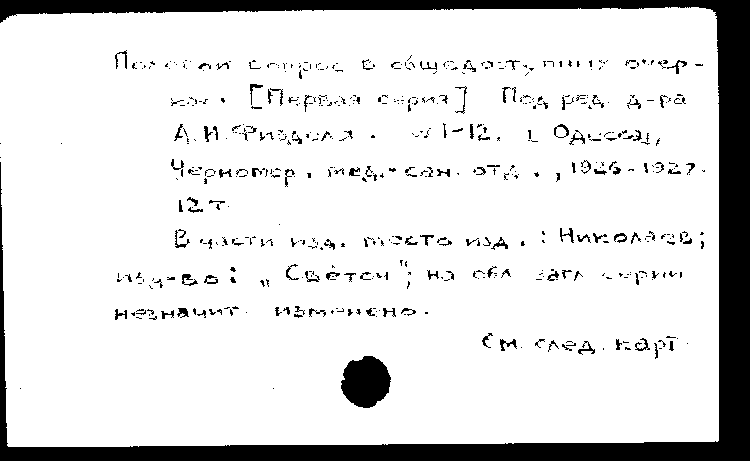 Половой вопрос в общедоступных очер-
ках. [Первая серия] Под ред. д-ра
А.И. Физделя. №1-12. [Одесса],
Черномор. мед.-сан. отд., 1926-1927.
12 т.
В части изд. место изд.: Николаев;
изд-во: „Светоч"; на обл. загл. серии
незначит. изменено.
См. след. карт.